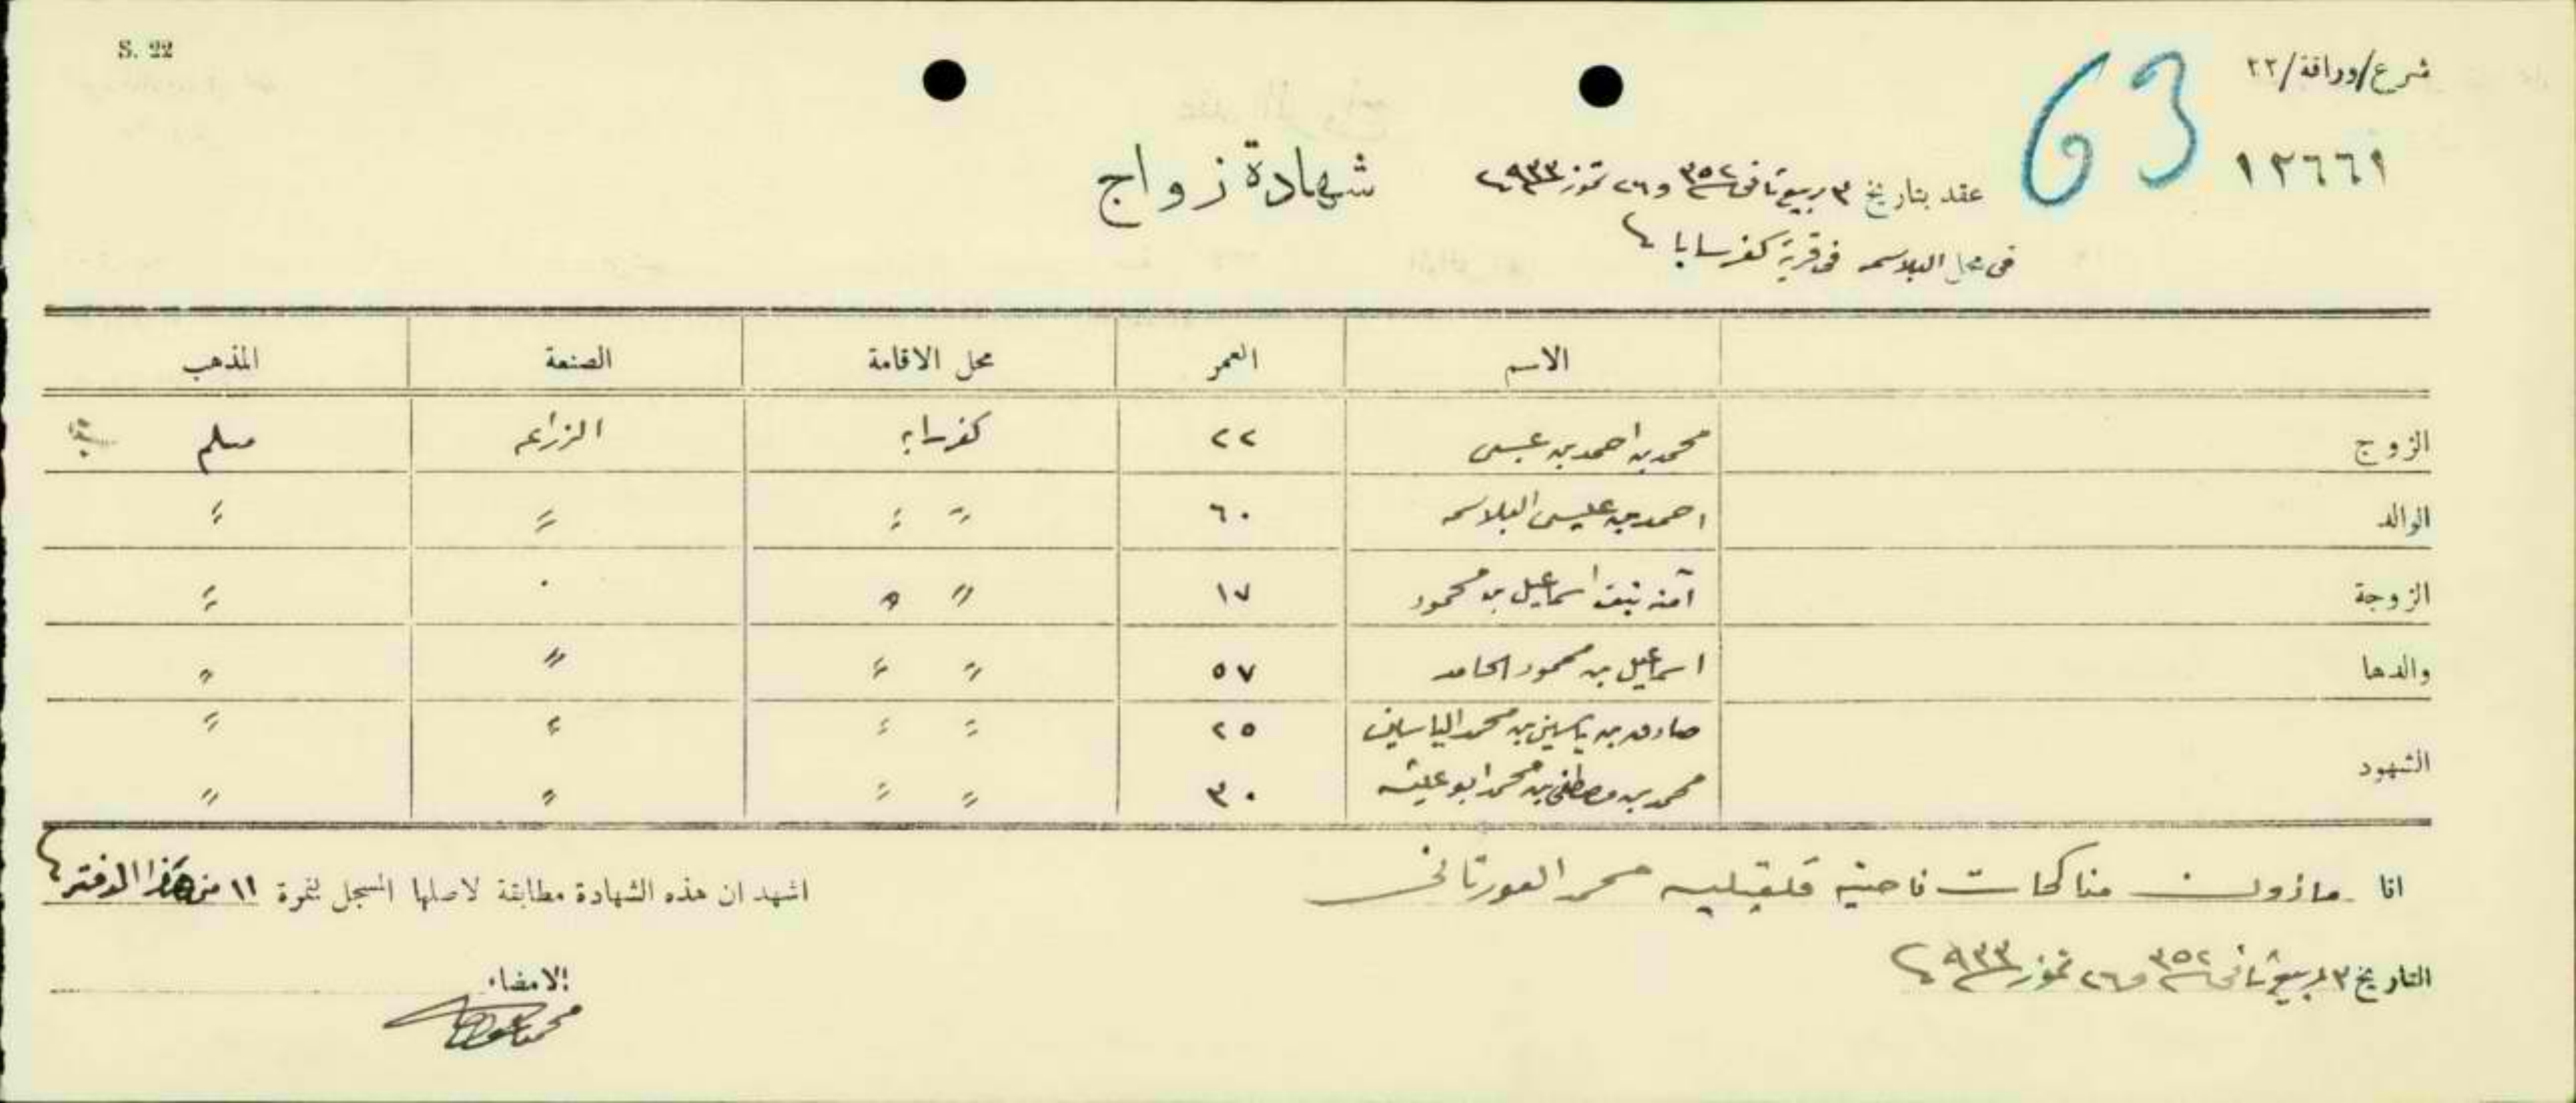 S. 22
شرع/وراقة/٢٢
63
١٢٦٦١
شهادة زواج
عقد بتاريخ ٣ ربيع ثاني ٣٥٢ و ٢٦ تموز ٩٣٣
في محل البلاسمه في قرية كفرسابا
الاسم العمر محل الاقامة الصنعة المذهب
الزوج محمد بن احمد بن عيسى ٢٢ كفرسابا الزراعه مسلم
الوالد احمد بن عيسى البلاسمه ٦٠〃 〃 〃 〃
الزوجة آمنه بنت اسماعيل بن محمود ١٧ 〃 〃 . 〃
والدها اسماعيل بن محمود الحامد ٥٧ 〃 〃 〃 〃
الشهود صادق بن ياسين بن محمد الياسين ٢٥ 〃 〃 〃 〃
محمد بن مصطفى بن محمد ابو عليشه ٣٠ 〃 〃 〃 〃
انا مأذون مناكحات ناحية قلقيليه محمد العورتاني
اشهد ان هذه الشهادة مطابقة لاصلها المسجل بنمرة ١١ من هذا الدفتر
التاريخ ٣ ربيع ثاني ٣٥٢ و ٢٦ تموز ٩٣٣
الامضاء